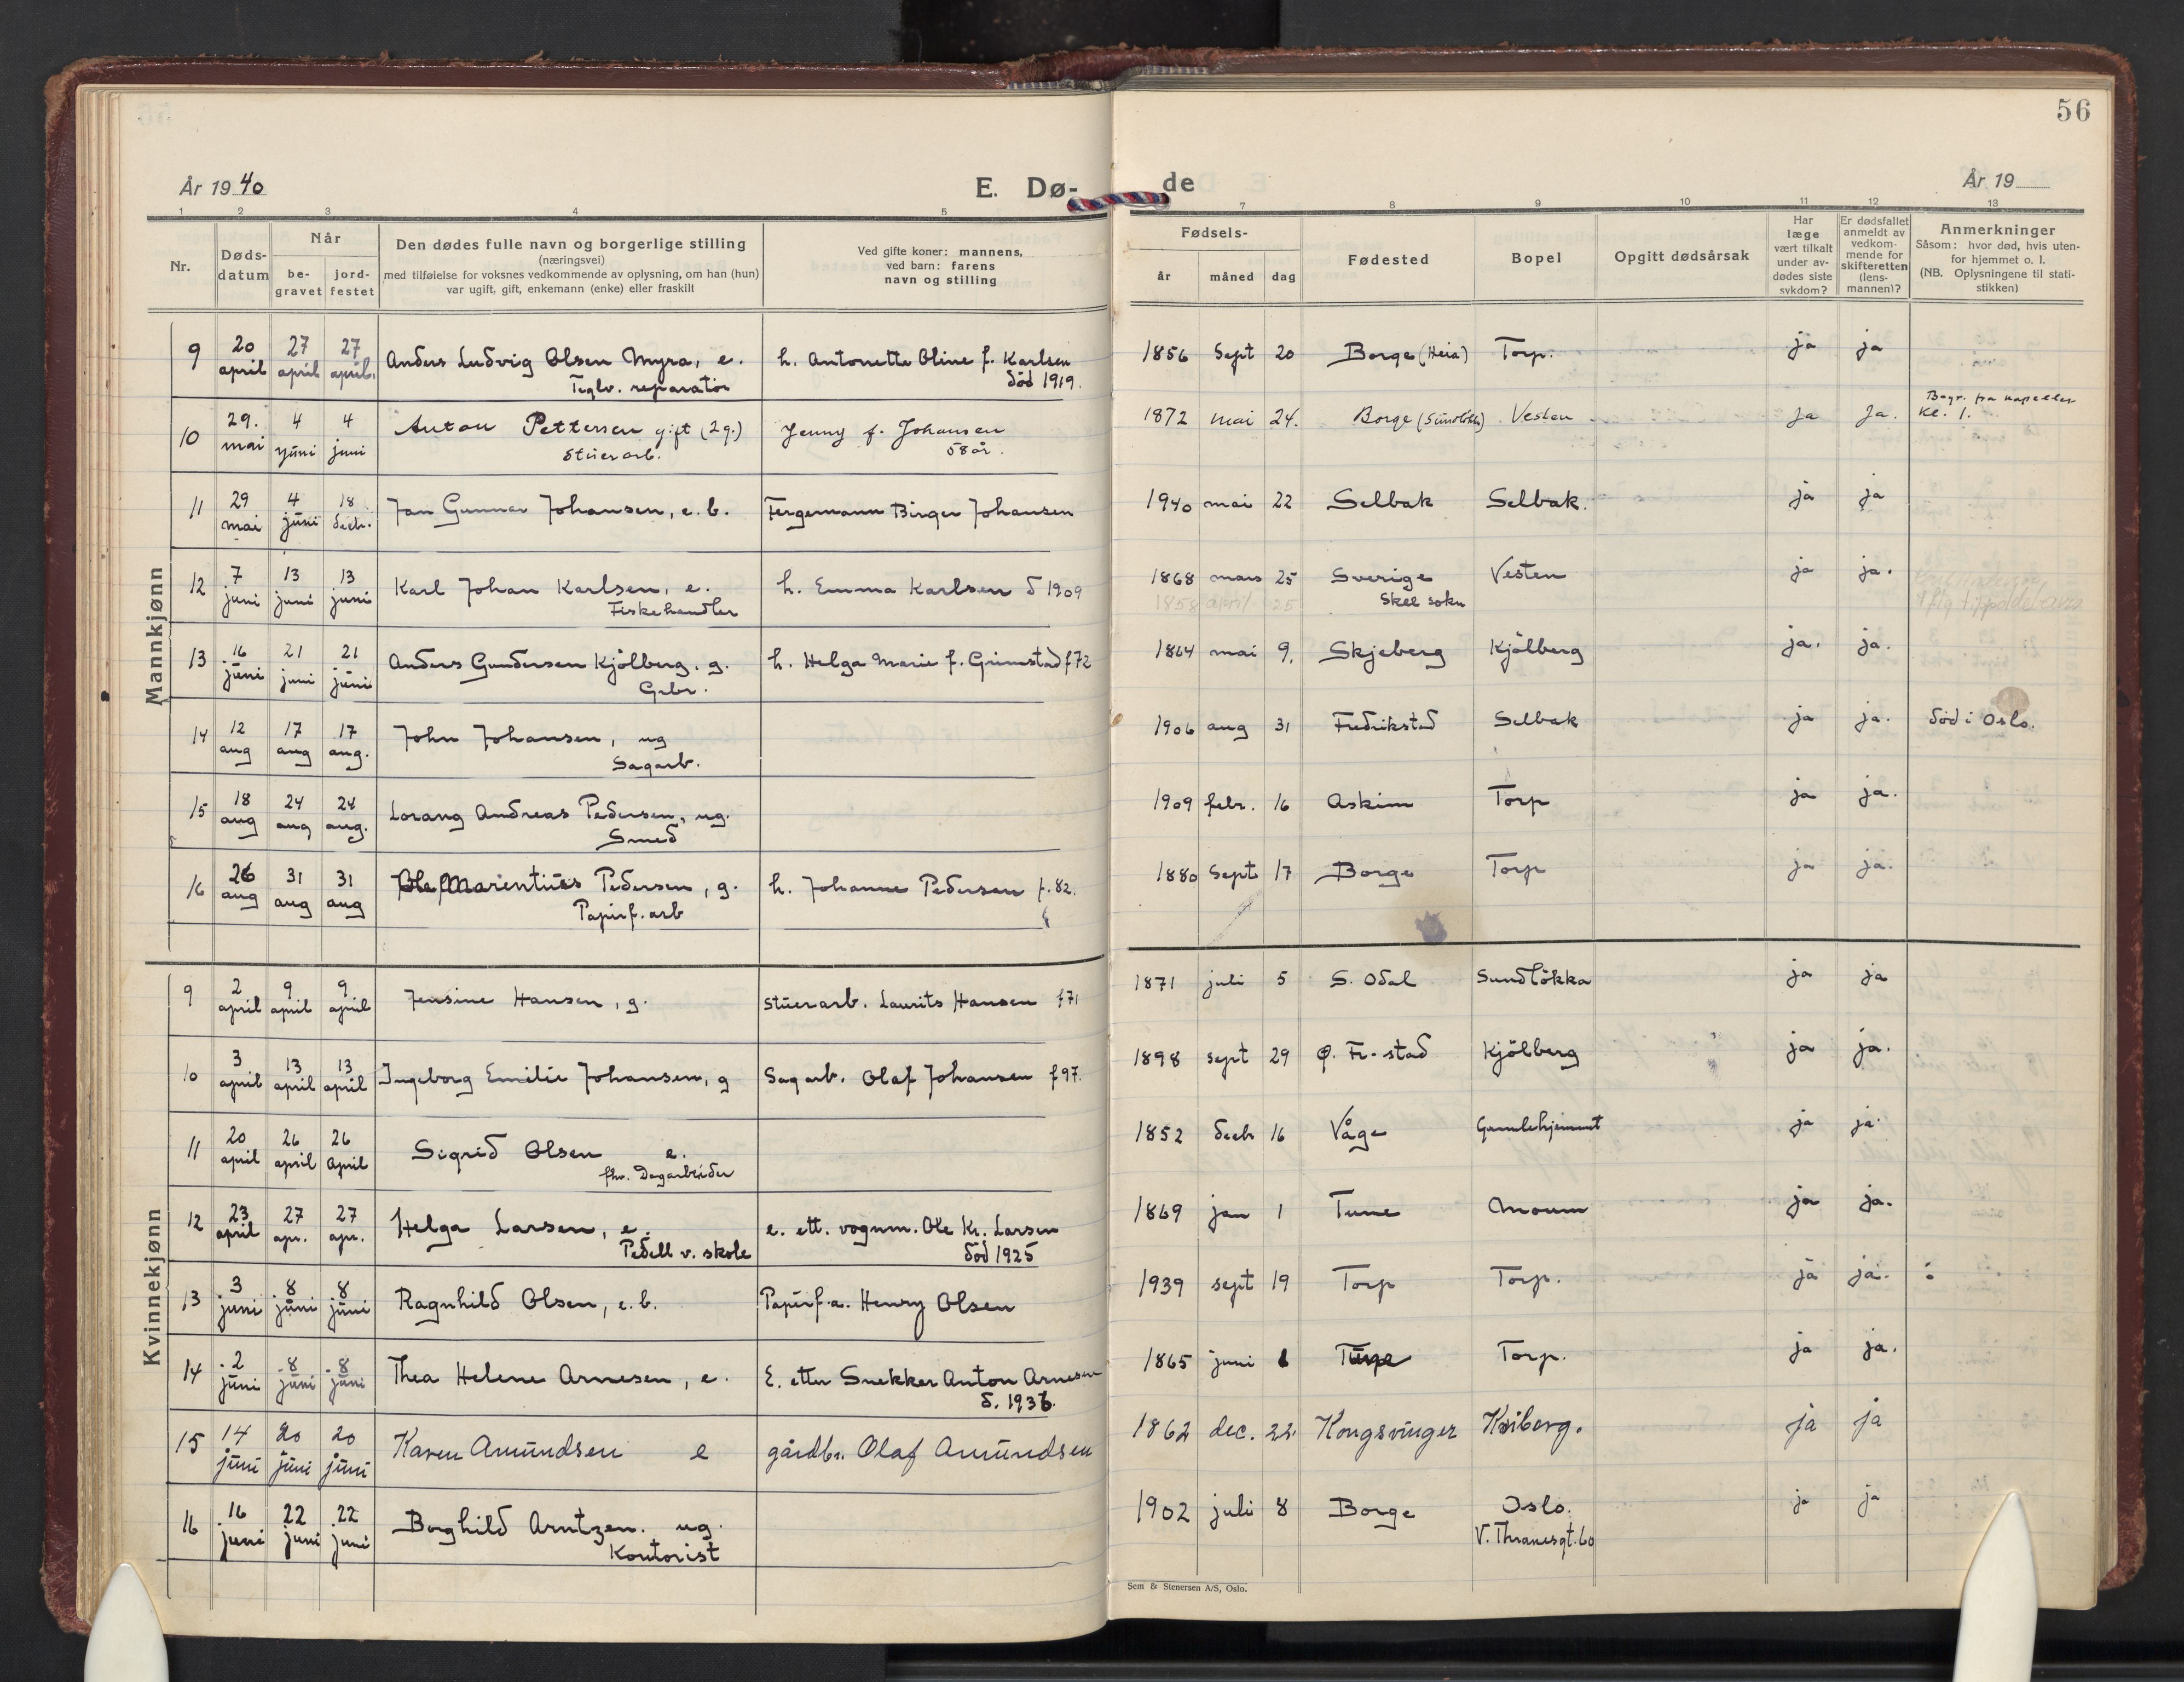 56
År 1940
E. Dø-
de
År 19
1 2 3 4 5
7 8 9 10 11 12 13
Nr.
Døds-
datum
Når
be-
gravet
jord-
festet
Den dødes fulle navn og borgerlige stilling
(næringsvei)
med tilføielse for voksnes vedkommende av oplysning, om han (hun)
var ugift, gift, enkemann (enke) eller fraskilt
Ved gifte koner: mannens,
ved barn: farens
navn og stilling
Fødsels-
år måned dag
Fødested
Bopel
Opgitt dødsårsak
Har
læge
vært tilkalt
under av-
dødes siste
sykdom?
Er dødsfallet
anmeldt av
vedkom-
mende for
skifteretten
(lens-
mannen)?
Anmerkninger
Såsom: hvor død, hvis uten-
for hjemmet o. l.
(NB. Oplysningene til stati-
stikken)
Mannkjønn
9 20 april 27 april 27 april. Anders Ludvig Olsen Myra, e. h. Antonette Oline f. Karlsen 1856 Sept 20 Borge (Heia) Torp. ja ja
Teglv. reparatör død 1919.
10 29. mai 4 juni 4 juni Anton Pettersen gift (2 g.) Jenny f. Johansen 1872 mai 24. Borge Vesten ja ja. Begr. fra kapellet
stuerarb. 58 år. Kl. 1.
11 29 mai 4 juni 18 decb. Jan Gunnar Johansen, e. b. Fergemann Birger Johansen 1940 mai 22 Selbak Selbak. ja ja
12 7 juni 13 juni 13 juni Karl Johan Karlsen, e. h. Emma Karlsen d 1909 1868 mars 25 Sverige Vesten ja ja.
Fiskehandler 1858 april 25 Skee sokn
13 16 juni 21 juni 21 juni Anders Gundersen Kjölberg, g. h. Helga Marie f. Grimstad f 72 1864 mai 9. Skjeberg Kjölberg ja. ja.
Gebr.
14 12 aug 17 aug 17 aug. John Johansen, ug 1906 aug 31 Fredrikstad Selbak ja ja. död i Oslo.
Sagarb.
15 18 aug 24 aug 24 aug. Lorang Andreas Pedersen, ug. 1909 febr. 16 Askim Torp ja ja.
Smed
16 26 aug 31 aug 31 aug Ole Marentius Pedersen, g. h. Johanne Pedersen f. 82. 1880 Sept 17 Borge Torp ja ja.
Papirf. arb
Kvinnekjønn
9 2 april 9 april 9 april Jensine Hansen, g. stuerarb. Laurits Hansen f 71 1871 juli 5 S. Odal Sundlökka ja ja
10 3 april 13 april 13 april Ingeborg Emilie Johansen, g Sagarb. Olaf Johansen f 97. 1898 sept 29 Ø. Fr-stad Kjölberg ja ja.
11 20 april 26 april 26 april Sigrid Olsen e. 1852 decb 16 Våge Gamlehjemmet ja ja.
fhv. Dagarbeider
12 23 april 27 apr. 27 apr. Helga Larsen, e. e. ett. vognm. Ole Kr. Larsen 1869 jan 1 Tune Moum ja ja.
Pedell v. skole död 1925
13 3 juni 8 juni 8 juni Ragnhild Olsen, e. b. Papirf.a. Henry Olsen 1939 sept 19 Torp Torp. ja ja.
14 2 juni 8 juni 8 juni Thea Helene Arnesen, e. E. etter Snekker Anton Arnesen 1865 juni 6 Tune Torp. ja ja.
d. 1936.
15 14 juni 20 juni 20 juni Karen Amundsen e gårdbr. Olaf Amundsen 1862 dec. 22. Kongsvinger Kviberg. ja ja
16 16 juni 22 juni 22 juni Borghild Arntzen. ug. 1902 juli 8 Borge Oslo. ja ja
Kontorist V. Thranesgt. 60
Sem & Stenersen A/S, Oslo.